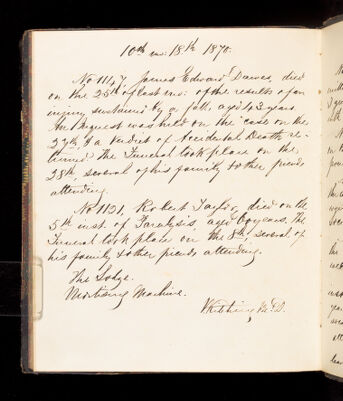 10th mo: 18th 1870.
No 1147 James Edward Dawes, died
on the 25th of last mo: of the results of an
injury sustained by a fall, aged 43 years
An Inquest was held on the case on the
27th, & a verdict of Accidental Death re-
turned. The Funeral took place on the
28th, several of his family & other friends
attending.
No 1121, Robert Taylor, died on the
5th inst. of Paralysis, aged 60 years. The
Funeral took place on the 8th, several of
his family & other friends attending.
The Lodge.
Mortising Machine.
Kitching M.D.